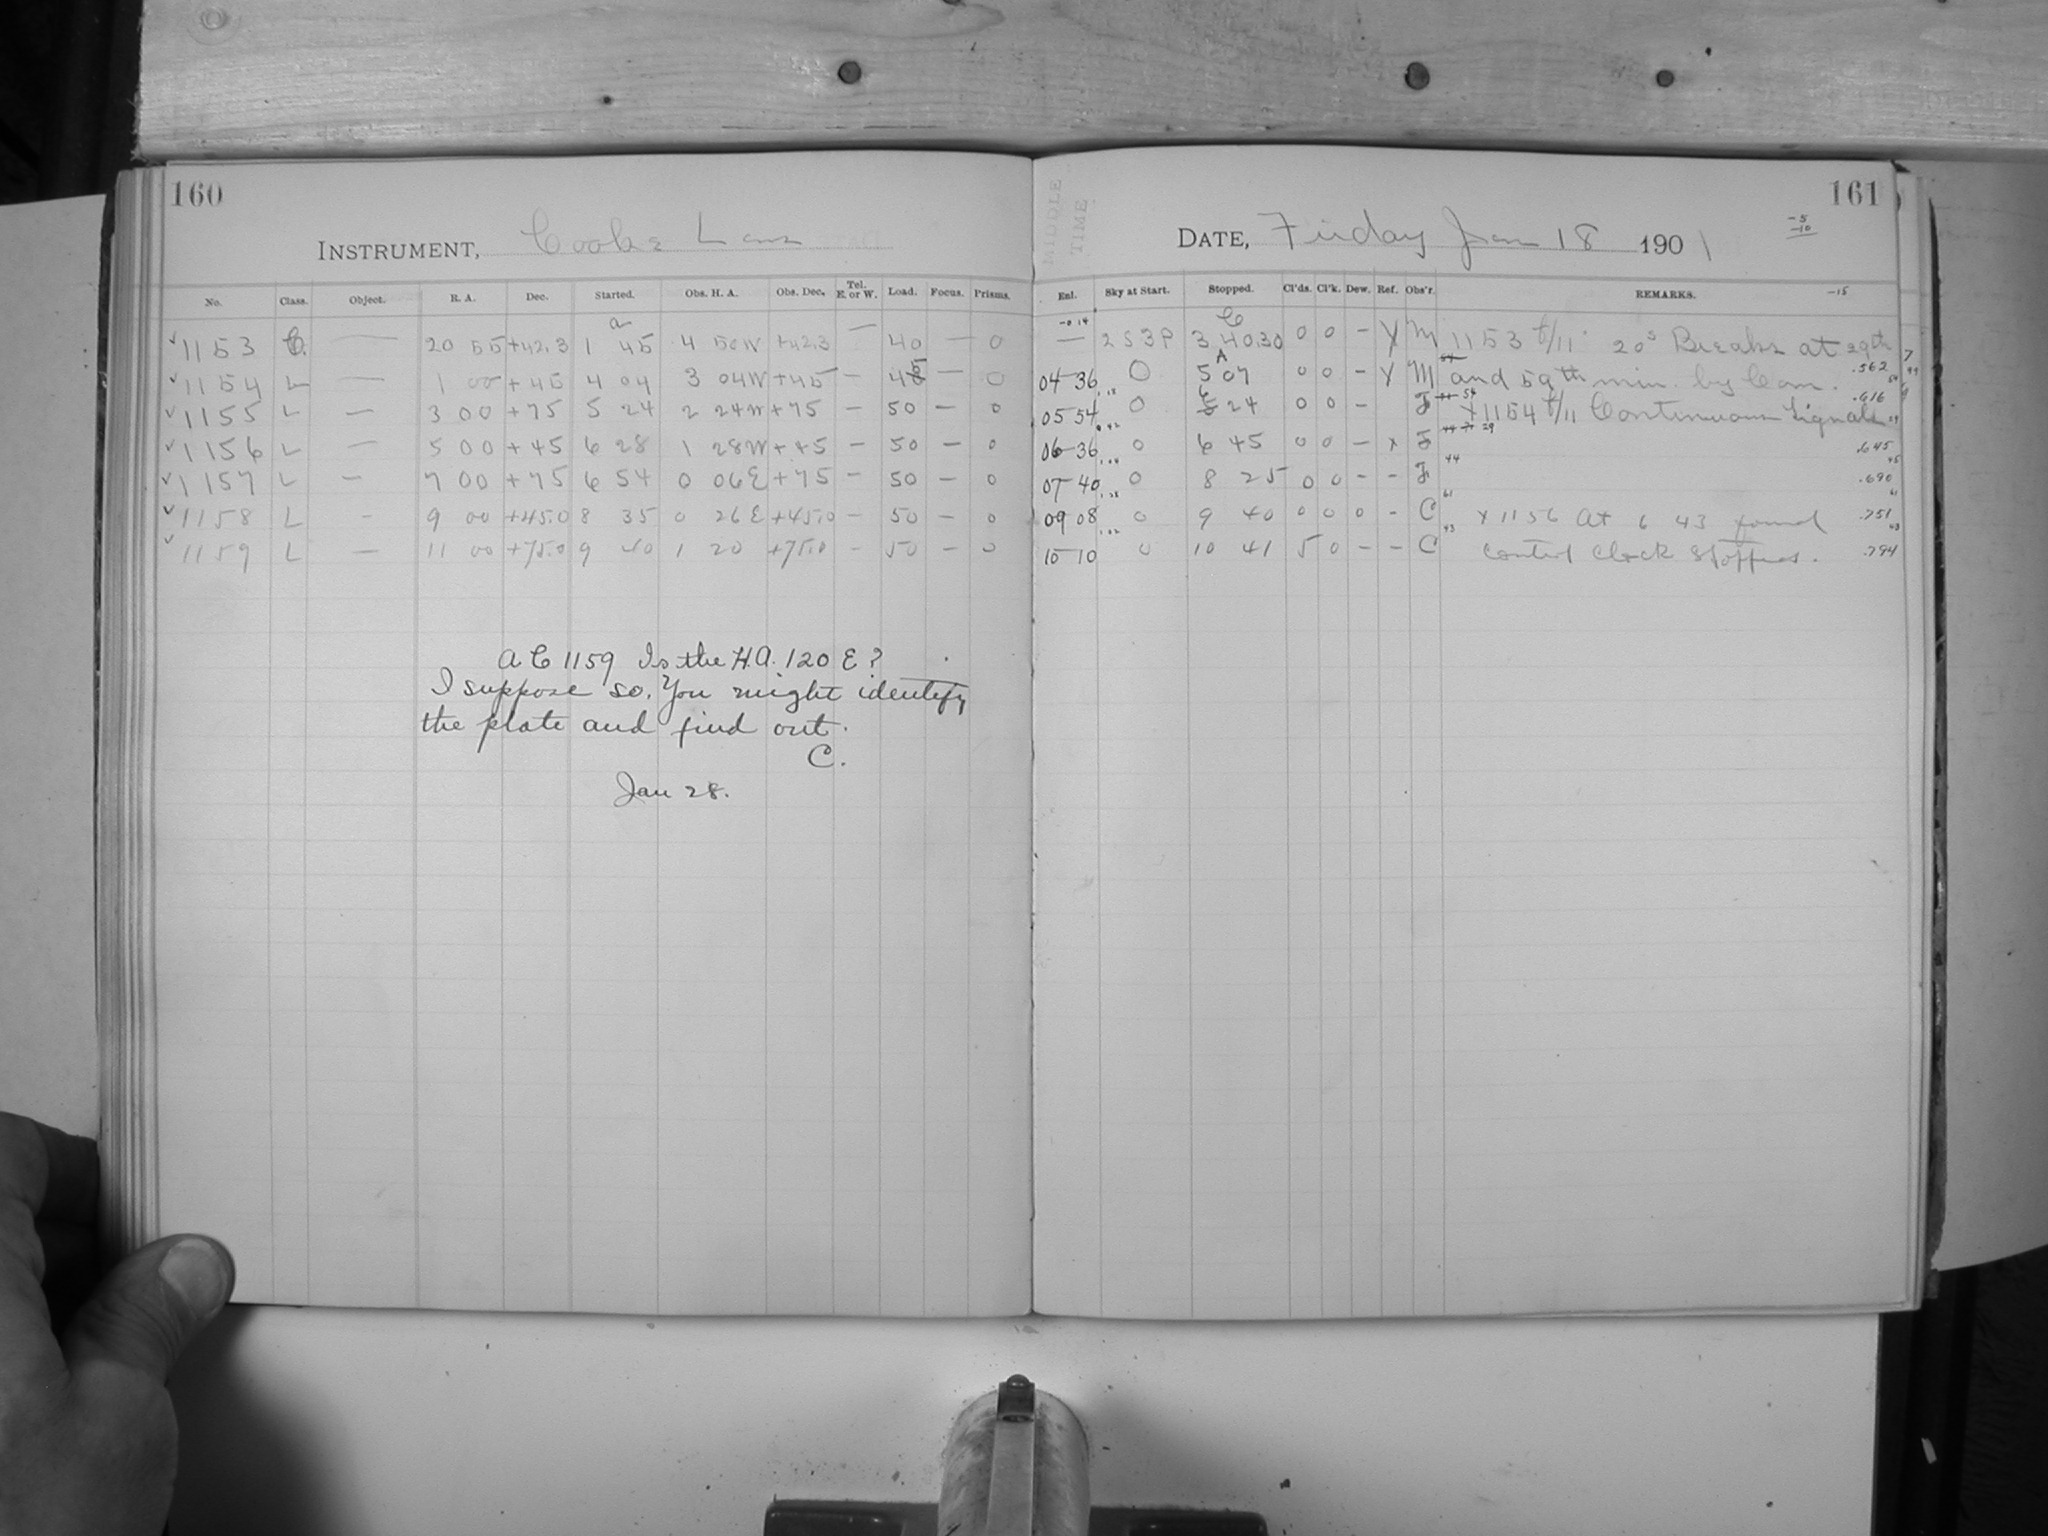 160
INSTRUMENT, Cooke Lens
No. Class. Object. R. A. Dec. Started. Obs. H. A. Obs. Dec. Tel. E. or W. Load. Focus. Prisms.
a
1153 C. — 20 55 +42.3 1 45 4 50W +42.3 — 40 — 0
1154 L — 1 00 +45 4 04 3 04W +45 — — 0
1155 L — 3 00 +75 5 24 2 24W +75 — 50 — 0
1156 L — 5 00 +45 6 28 1 28W +45 — 50 — 0
1157 L — 7 00 +75 6 54 0 06E +75 — 50 — 0
1158 L — 9 00 +45.0 8 35 0 26E +45.0 — 50 — 0
1159 L — 11 00 +75.0 9 40 1 20 +75.0 — 50 — 0
A C 1159 Is the H.A. 120 E?
I suppose so. You might identify
the plate and find out.
C.
Jan 28.
161
MIDDLE
TIME
DATE, Friday Jan 18 1901
-5
-10
-15
Enl. Sky at Start. Stopped. Cl'ds. Cl'k. Dew. Ref. Obs'r. REMARKS.
— 2S3P 3 40.30 0 0 – X M 1153 f/11 20s Breaks at 29th
04 36 0 5 07 0 0 – X M and 59th min. by Cam. .562
05 54 0 24 0 0 – F X 1154 f/11 Continuous Signals .616
06 36 0 6 45 0 0 – x F .645
07 40 0 8 25 0 0 – – F .690
09 08 0 9 40 0 0 0 – C x 1156 At 6 43 found .751
10 10 0 10 41 5 0 – – C control clock stopped. .794